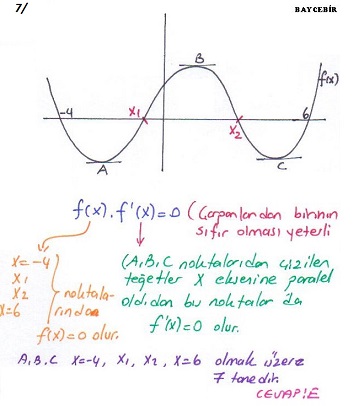 7/
BAYCEBİR
B
f(x)
-4
x1
x2
6
A
C
f(x) . f'(x) = 0 (Çarpanlardan birinin
sıfır olması yeterli
x = -4
x1
x2
x = 6
noktala-
rından
f(x) = 0 olur.
(A, B, C noktalarından çizilen
teğetler X eksenine paralel
old.dan bu noktalar da
f'(x) = 0 olur.
A, B, C x = -4, x1, x2, x = 6 olmak üzere
7 tanedir.
CEVAP: E